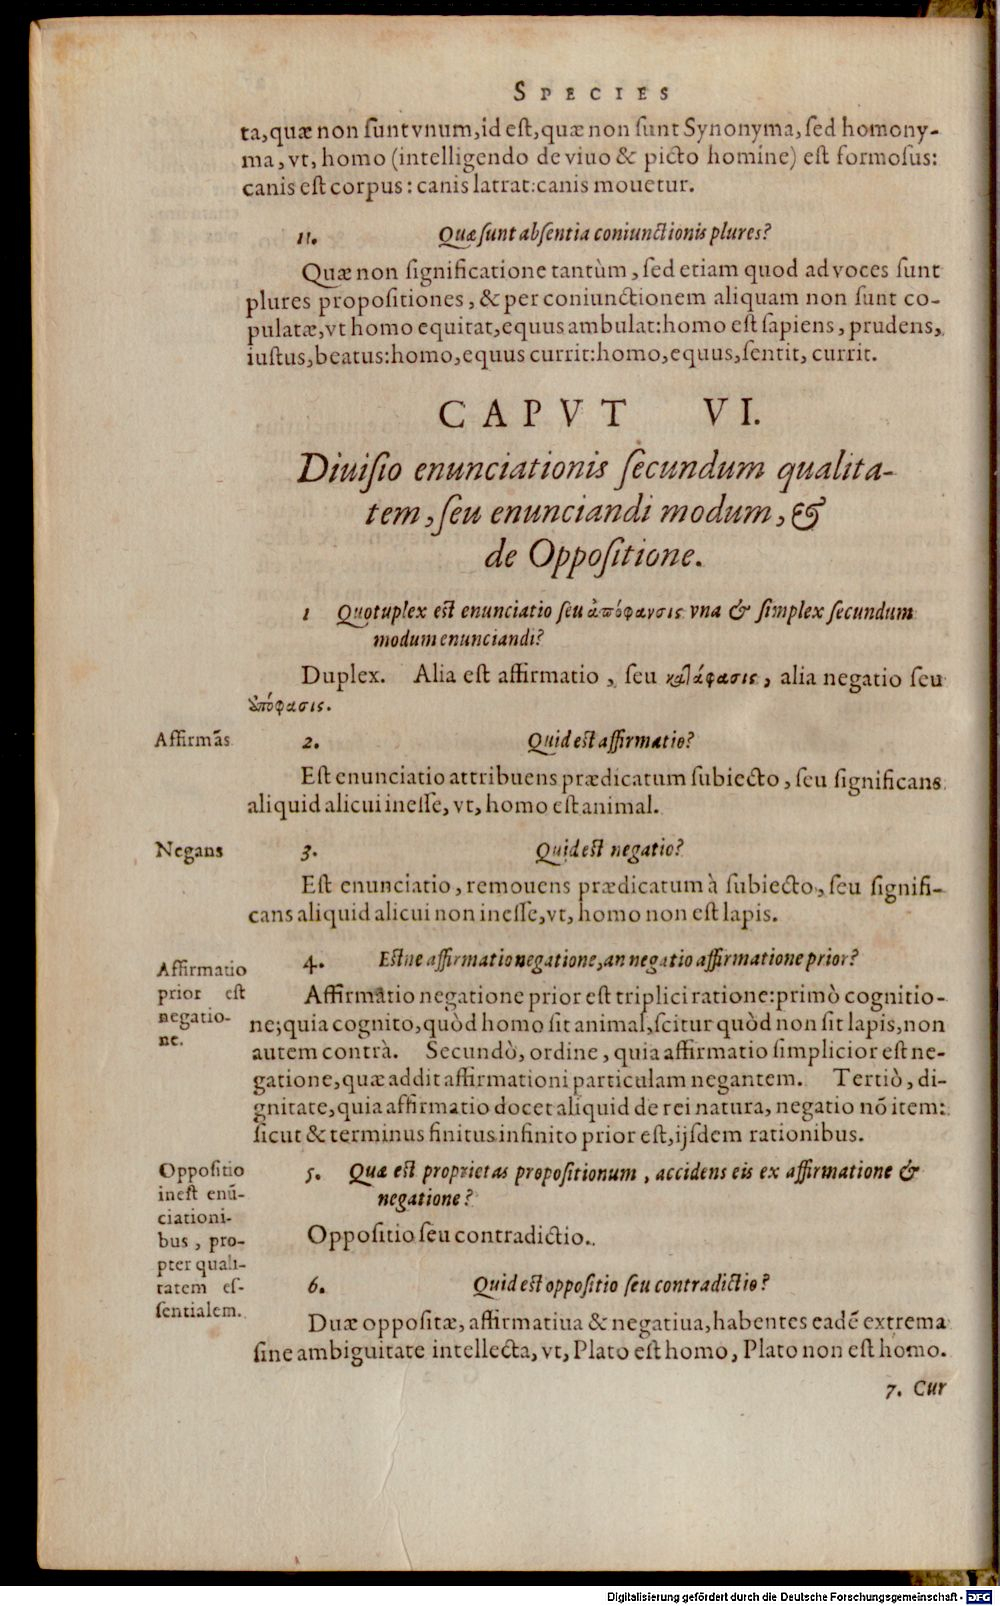 SPECIES
ta,quæ non ſunt vnum,id eſt,quæ non ſunt Synonyma, ſed homony-
ma, vt, homo (intelligendo de viuo & picto homine) eſt formoſus:
canis eſt corpus: canis latrat:canis mouetur.
11. Quæ ſunt abſentia coniunctionis plures?
Quæ non ſignificatione tantùm, ſed etiam quod ad voces ſunt
plures propoſitiones, & per coniunctionem aliquam non ſunt co-
pulatæ, vt homo equitat, equus ambulat:homo eſt ſapiens, prudens,
iuſtus, beatus:homo, equus currit:homo, equus, ſentit, currit.
CAPVT VI.
Diuiſio enunciationis ſecundum qualita-
tem, ſeu enunciandi modum, &
de Oppoſitione.
1 Quotuplex eſt enunciatio ſeu ἀπόφανσις vna & ſimplex ſecundum
modum enunciandi?
Duplex. Alia eſt affirmatio, ſeu κατάφασις, alia negatio ſeu
ἀπόφασις.
Affirmãs
2. Quid eſt affirmatio?
Eſt enunciatio attribuens prædicatum ſubiecto, ſeu ſignificans
aliquid alicui ineſſe, vt, homo eſt animal.
Negans
3. Quid eſt negatio?
Eſt enunciatio, remouens prædicatum à ſubiecto, ſeu ſignifi-
cans aliquid alicui non ineſſe, vt, homo non eſt lapis.
Affirmatio
prior eſt
negatio-
ne.
4. Eſtne affirmatio negatione, an negatio affirmatione prior?
Affirmatio negatione prior eſt triplici ratione:primò cognitio-
ne; quia cognito, quòd homo ſit animal, ſcitur quòd non ſit lapis, non
autem contrà. Secundò, ordine, quia affirmatio ſimplicior eſt ne-
gatione, quæ addit affirmationi particulam negantem. Tertiò, di-
gnitate, quia affirmatio docet aliquid de rei natura, negatio nõ item:
ſicut & terminus finitus infinito prior eſt, ijſdem rationibus.
Oppoſitio
ineſt enũ-
ciationi-
bus, pro-
pter quali-
tatem eſ-
ſentialem.
5. Quæ eſt proprietas propoſitionum, accidens eis ex affirmatione &
negatione?
Oppoſitio ſeu contradictio.
6. Quid eſt oppoſitio ſeu contradictio?
Duæ oppoſitæ, affirmatiua & negatiua, habentes eadẽ extrema
ſine ambiguitate intellecta, vt, Plato eſt homo, Plato non eſt homo.
7. Cur
Digitalisierung gefördert durch die Deutsche Forschungsgemeinschaft - DFG